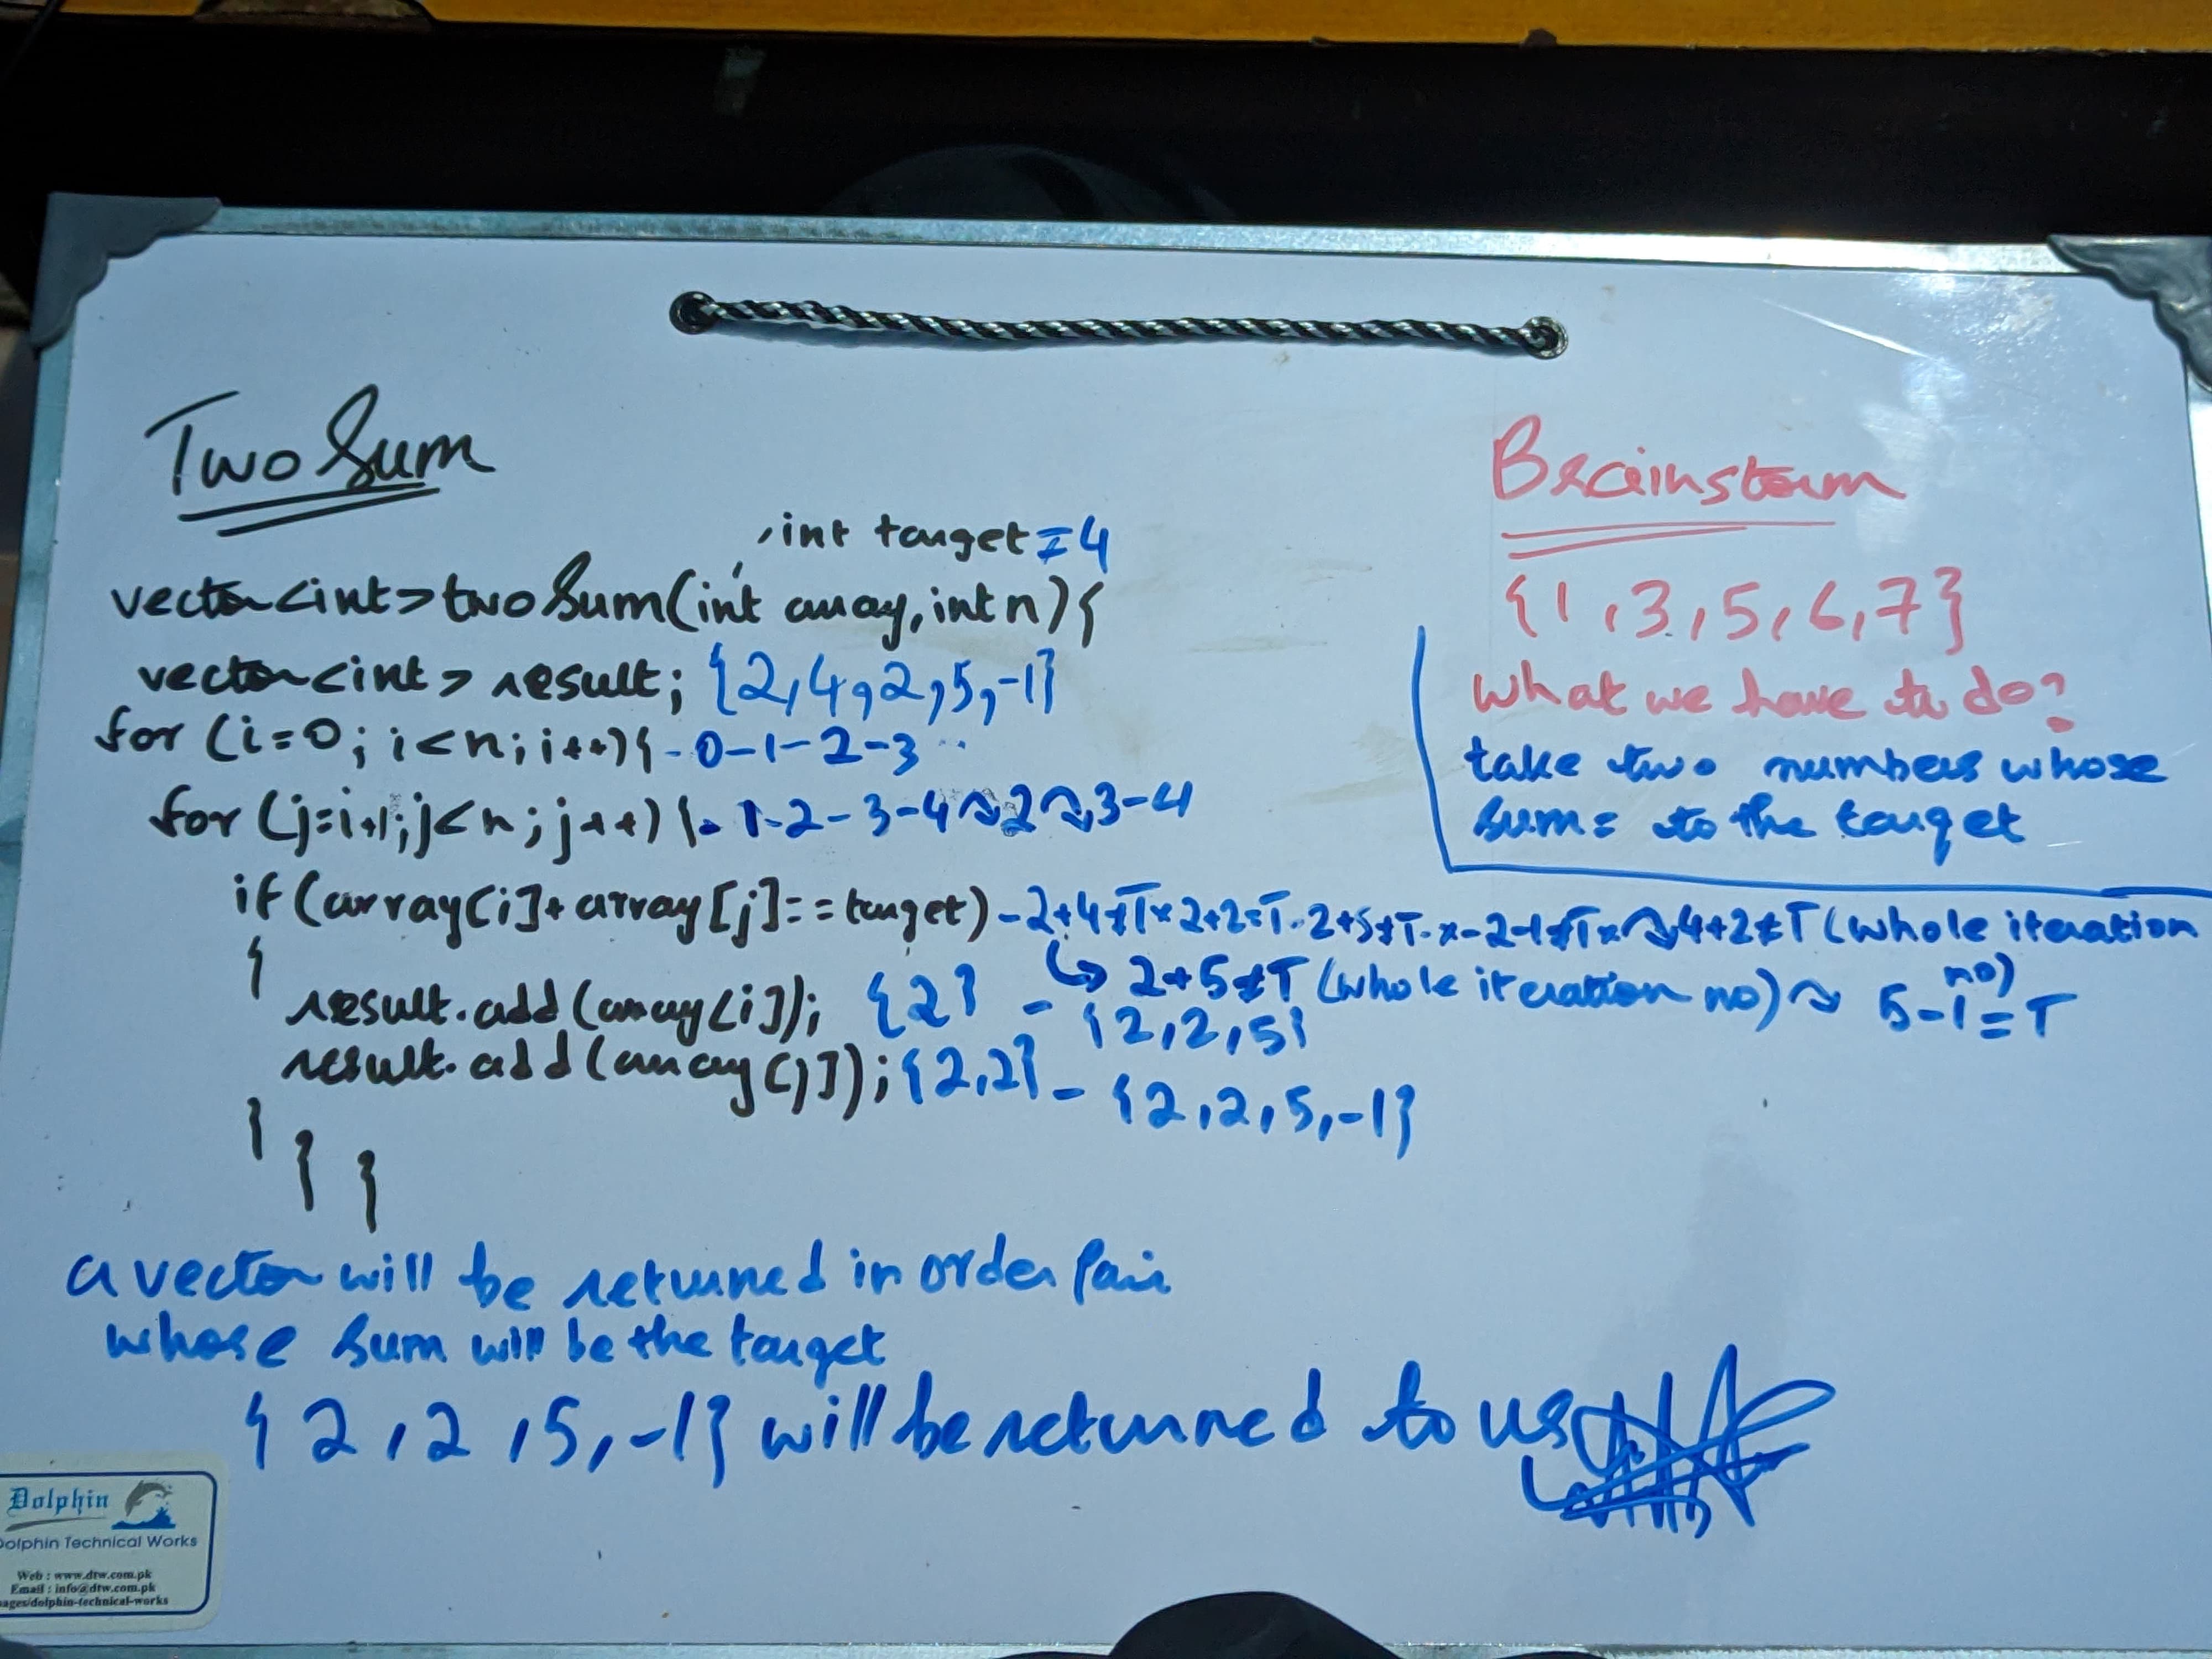 Two Sum
, int target = 4
vector<int> twoSum(int array, int n){
vector<int> result; {2,4,2,5,-1}
for (i=0; i<n; i++){ - 0-1-2-3
for (j=i+1; j<n; j++) {- 1-2-3-4 ~ 2 ~ 3-4
if (array[i]+array[j]==target) - 2+4≠T× 2+2=T. 2+5≠T.×- 2-1≠T× ~ 4+2≠T (whole iteration no)
↳ 2+5≠T (whole iteration no) ~ 5-1=T
{
result.add(array[i]); {2} - {2,2,5}
result.add(array[j]); {2,2} - {2,2,5,-1}
}
} }
a vector will be returned in order pair
whose sum will be the target
{2,2,5,-1} will be returned to us
Brainstorm
{1,3,5,6,7}
what we have to do?
take two numbers whose
sum = to the target
Dolphin
Dolphin Technical Works
Web : www.dtw.com.pk
Email : info@dtw.com.pk
ages/dolphin-technical-works